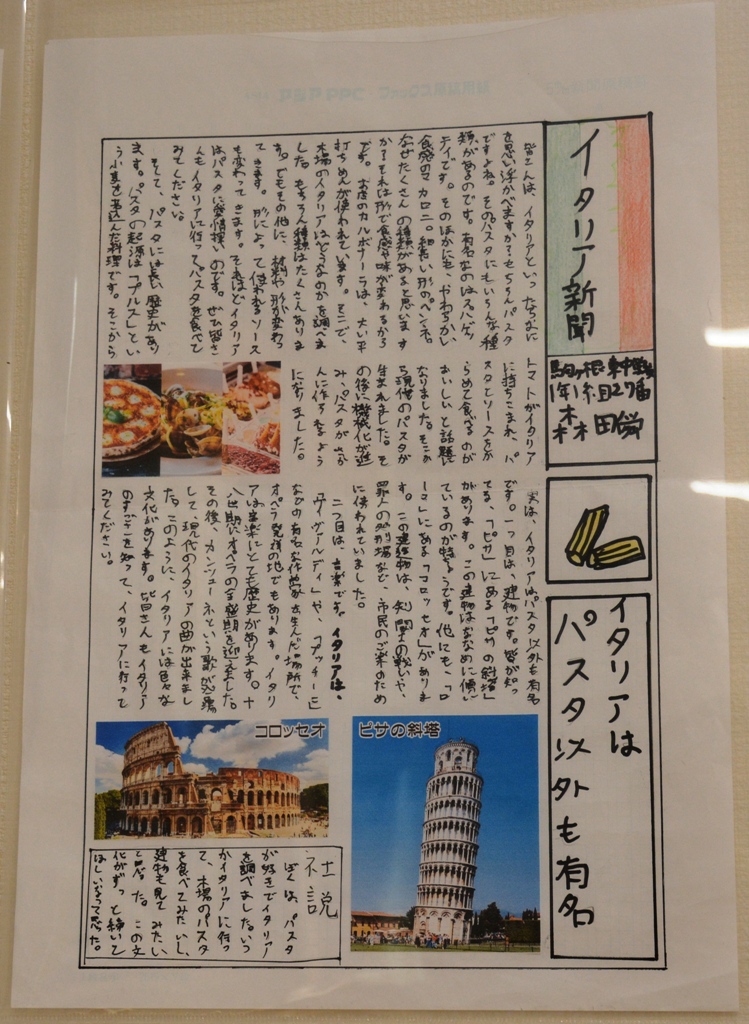 イタリア新聞
1年1組27番
森田
皆さんは、イタリアといったらなに
を思い浮かべますか?もちろんパスタ
ですよね。そのパスタにもいろんな種
類があるのです。有名なのはスパゲッ
ティです。そのほかにも、やわらかい
食感のマカロニ。細長い形のペンネ。
なぜたくさんの種類があると思います
か?それは形で食感や味が変わるから
です。お店のカルボナーラは、太い平
打ちめんが使われています。そこで、
本場のイタリアはどうなのかを調べま
した。もちろん種類はたくさんありま
す。でもその他に、材料や形が変わっ
てきます。形によって使われるソース
も変わってきます。それほどイタリア
はパスタに愛情深いのです。ぜひ皆さ
んもイタリアに行ってパスタを食べて
みてください。
そして、パスタには長い歴史があり
ます。パスタの起源は「プルス」とい
う小麦を煮込んだ料理です。そこから
トマトがイタリア
に持ちこまれ、パ
スタとソースをか
らめて食べるのが
おいしいと話題に
なりました。そこか
ら現代のパスタが
生まれました。そ
の後に機械化が進
み、パスタがさか
んに作られるよう
になりました。
イタリアは
パスタ以外も有名
実は、イタリアはパスタ以外も有名
です。一つ目は、建物です。皆が知っ
てる、「ピサ」にある「ピサの斜塔」
があります。この建物はななめに傾い
ているのが特ちょうです。他にも、「ロ
ーマ」にある「コロッセオ」がありま
す。この建造物は、剣闘士の戦いや、
罪人の処刑場などで、市民のご楽のため
に使われていました。
二つ目は、音楽です。イタリアは、
「ヴィヴァルディ」や、「プッチーニ」
などの有名な作曲家を生んだ場所で、
オペラ発祥の地でもあります。イタリ
アは音楽にとても歴史があります。十
八世期にオペラの全盛期を迎えました。
その後、カンツォーネという歌が登場
して、現代のイタリアの曲が出来まし
た。このように、イタリアには色々な
文化があります。皆さんもイタリア
のすごさを知って、イタリアに行って
みてください。
ピサの斜塔
コロッセオ
社説
ぼくは、パスタ
が好きでイタリア
を調べました。いつ
かイタリアに行っ
て、本場のパスタ
を食べてみたいし、
建物も見てみたい
と思った。この文
化がずっと続いて
ほしいなって思った。